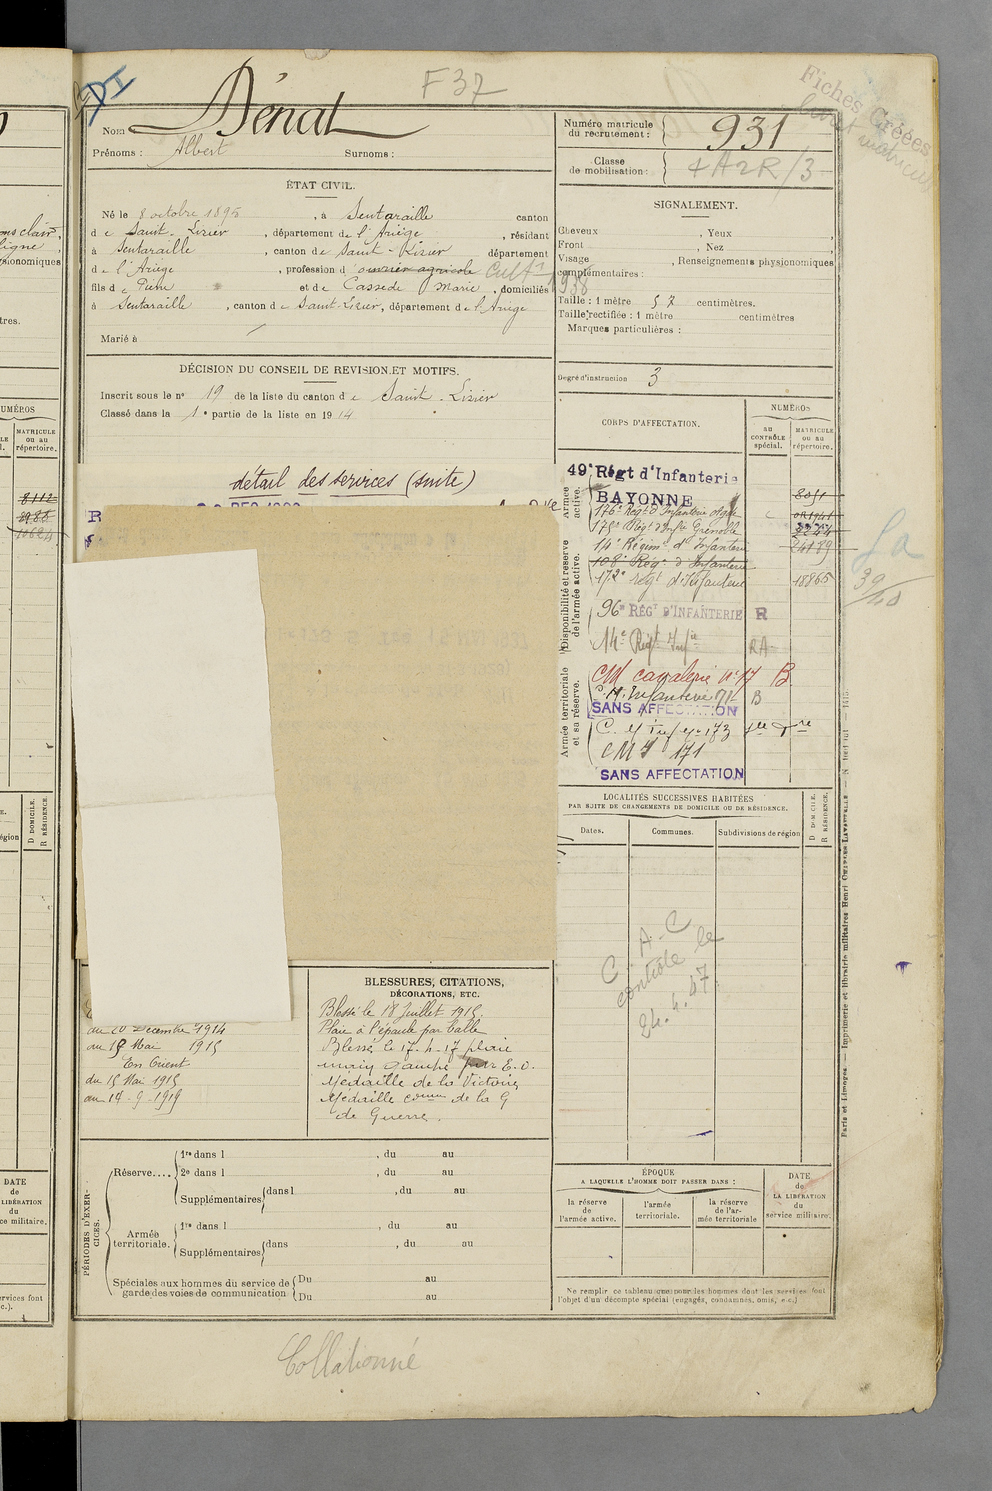 F 37
Fiches Créées
livret matricule
Nom Dénat
Prénoms : Albert Surnoms :
Numéro matricule
du recrutement : 931
Classe
de mobilisation : 4A2R/3
ÉTAT CIVIL.
Né le 8 octobre 1895, à Sentaraille canton
de Saint-Lizier, département de l'Ariège, résidant
à Sentaraille, canton de Saint-Lizier département
de l'Ariège, profession d'ouvrier agricole Cultr 1938
fils de Pierre et de Cassede Marie, domiciliés
à Sentaraille, canton de Saint-Lizier, département de l'Ariège
Marié à
SIGNALEMENT.
Cheveux , Yeux ,
Front , Nez
Visage , Renseignements physionomiques
complémentaires :
Taille : 1 mètre 57 centimètres.
Taille rectifiée : 1 mètre centimètres
Marques particulières :
Degré d'instruction 3
DÉCISION DU CONSEIL DE REVISION ET MOTIFS.
Inscrit sous le n° 19 de la liste du canton de Saint-Lizier
Classé dans la 1e partie de la liste en 1914
détail des services (suite)
CORPS D'AFFECTATION.
NUMÉROS
au
CONTRÔLE
spécial.
MATRICULE
ou au
répertoire.
Armée
active.
Disponibilité et réserve
de l'armée active.
Armée territoriale
et sa réserve.
49e Régt d'Infanterie
BAYONNE 8051
176e Régt d'Infanterie
175e Régt d'Infie Grenoble
14e Régimt d'Infanterie 24189
108e Régt d'Infanterie
172e régt d'Infanterie 18865
96e RÉGt D'INFANTERIE R
14e Régt Infie RA
CM cavalerie n°17 B
C.M. Infanterie 171 B
SANS AFFECTATION
C. M Inf n° 173
CMI 171
SANS AFFECTATION
39/40
LOCALITÉS SUCCESSIVES HABITÉES
PAR SUITE DE CHANGEMENTS DE DOMICILE OU DE RÉSIDENCE.
Dates. Communes. Subdivisions de région D DOMICILE. R RÉSIDENCE.
C.A.C
contrôle le
24.4.47
BLESSURES, CITATIONS,
DÉCORATIONS, ETC.
Blessé le 18 Juillet 1915.
Plaie à l'épaule par balle
Blessé le 17-4-17 plaie
main gauche par E.O.
Médaille de la Victoire
Médaille comm de la G
de Guerre.
au 20 Decembre 1914
au 15 Mai 1915
En Orient
du 15 Mai 1915
au 14-9-1919
PÉRIODES D'EXERCICES.
Réserve.... 1re dans l , du au
2e dans l , du au
Supplémentaires dans l , du au
Armée
territoriale. 1re dans l , du au
Supplémentaires dans , du au
Spéciales aux hommes du service de
garde des voies de communication Du au
Du au
ÉPOQUE
A LAQUELLE L'HOMME DOIT PASSER DANS :
la réserve
de
l'armée active.
l'armée
territoriale.
la réserve
de l'armée territoriale
DATE
de
LA LIBÉRATION
du
service militaire.
Ne remplir ce tableau que pour les hommes dont les services font
l'objet d'un décompte spécial (engagés, condamnés, omis, e.c.)
Paris et Limoges. — Imprimerie et librairie militaires Henri CHARLES-LAVAUZELLE
Collationné
NUMÉROS
MATRICULE
ou au
répertoire.
8112
10624
D DOMICILE.
R RÉSIDENCE.
DATE
de
LIBÉRATION
du